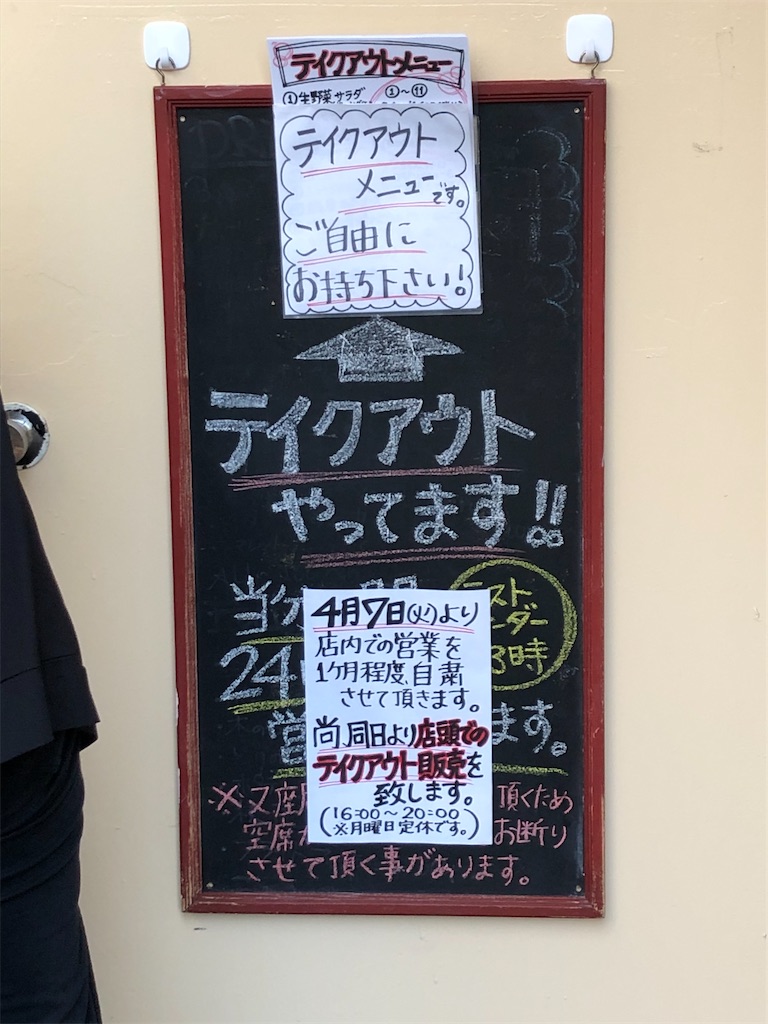 テイクアウトメニュー
①生野菜サラダ ①～⑪
テイクアウト
メニューです。
ご自由に
お持ち下さい!
テイクアウト
やってます!!
4月7日(火)より
店内での営業を
1ヶ月程度、自粛
させて頂きます。
尚、同日より店頭での
テイクアウト販売を
致します。
(16:00～20:00
※月曜日定休です。)
当分
スト
ーダー
24
3時
営 ます。
※又座 頂くため
空席 お断り
させて頂く事があります。